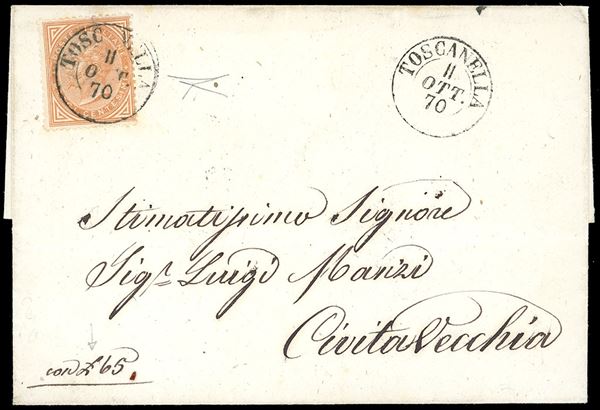 TOSCANELLA
11
OTT.
70
CENTESIMI
TOSCANELLA
11
OTT.
70
Stimatissimo Signore
Sigr Luigi Manzi
Civita Vecchia
con £ 65.